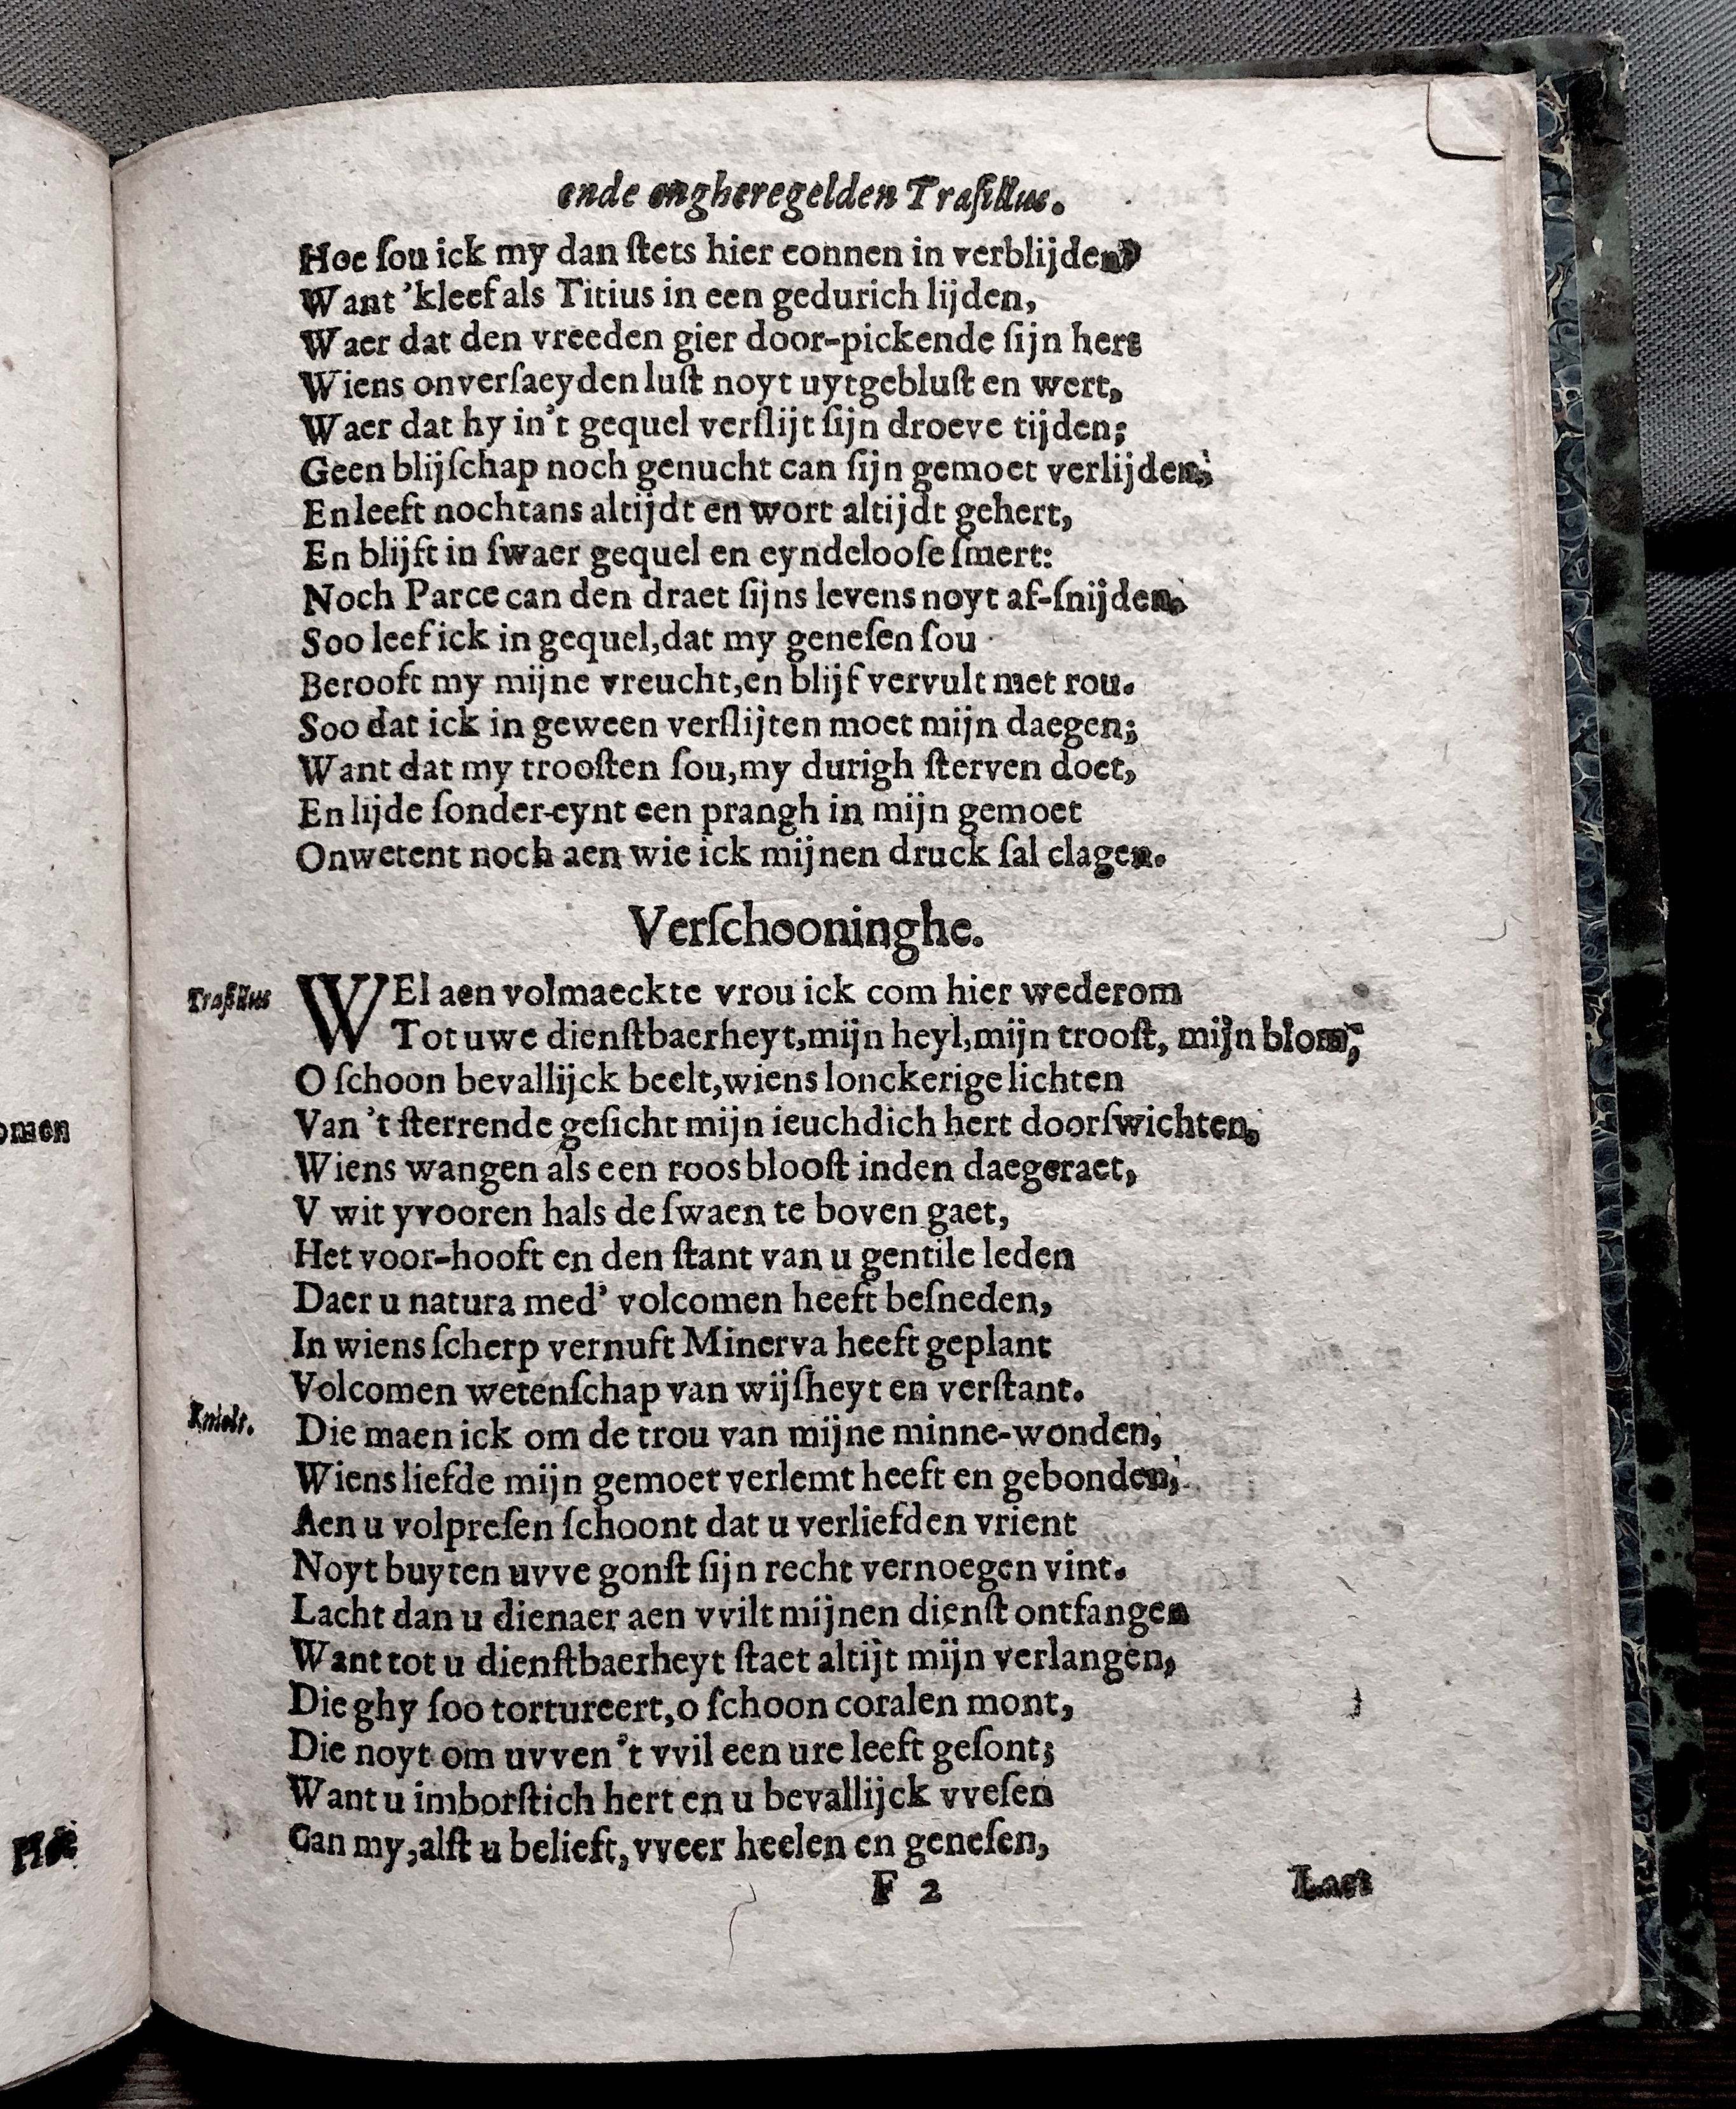 ende ongheregelden Traſillus.
Hoe ſou ick my dan ſtets hier connen in verblijden?
Want 'kleef als Titius in een gedurich lijden,
Waer dat den vreeden gier door-pickende ſijn hert
Wiens onverſaeyden luſt noyt uytgebluſt en wert,
Waer dat hy in't gequel verſlijt ſijn droeve tijden;
Geen blijſchap noch genucht can ſijn gemoet verlijden;
En leeft nochtans altijdt en wort altijdt gehert,
En blijft in ſwaer gequel en eyndelooſe ſmert:
Noch Parce can den draet ſijns levens noyt af-ſnijden.
Soo leef ick in gequel, dat my geneſen ſou
Berooft my mijne vreucht, en blijf vervult met rou.
Soo dat ick in geween verſlijten moet mijn daegen;
Want dat my trooſten ſou, my durigh ſterven doet,
En lijde ſonder-eynt een prangh in mijn gemoet
Onwetent noch aen wie ick mijnen druck ſal clagen.
Verſchooninghe.
Traſillus WEl aen volmaeckte vrou ick com hier wederom
Tot uwe dienſtbaerheyt, mijn heyl, mijn trooſt, mijn blom;
O ſchoon bevallijck beelt, wiens lonckerige lichten
Van 't ſterrende geſicht mijn ieuchdich hert doorſwichten,
Wiens wangen als een roos blooſt inden daegeraet,
V wit yvooren hals de ſwaen te boven gaet,
Het voor-hooft en den ſtant van u gentile leden
Daer u natura med' volcomen heeft beſneden,
In wiens ſcherp vernuft Minerva heeft geplant
Volcomen wetenſchap van wijſheyt en verſtant.
Knielt. Die maen ick om de trou van mijne minne-wonden;
Wiens liefde mijn gemoet verlemt heeft en gebonden;
Aen u volpreſen ſchoont dat u verliefden vrient
Noyt buyten uvve gonſt ſijn recht vernoegen vint.
Lacht dan u dienaer aen vvilt mijnen dienſt ontfangen
Want tot u dienſtbaerheyt ſtaet altijt mijn verlangen,
Die ghy ſoo tortureert, o ſchoon coralen mont,
Die noyt om uvven 't vvil een ure leeft geſont;
Want u imborſtich hert en u bevallijck vveſen
Can my, alſt u belieft, vveer heelen en geneſen,
F 2 Laet
omen
Hoe